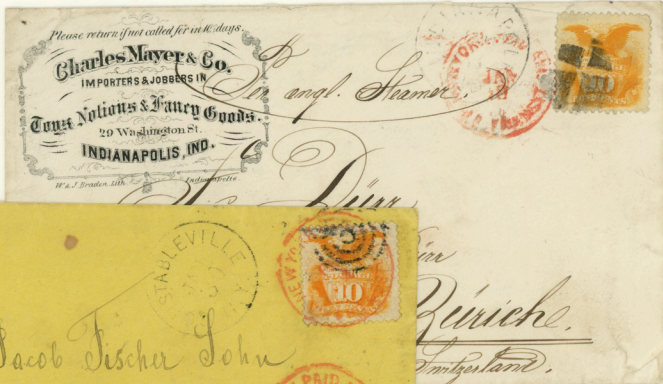 Please return if not called for in 10 days.
Charles Mayer & Co.
IMPORTERS & JOBBERS IN
Toys Notions & Fancy Goods.
29 Washington St.
INDIANAPOLIS, IND.
W. & J. Braden. Lith. Indianapolis
Per angl. Steamer.
NEW YORK PAID ALL
BR. TRANSIT
10
Dürr
Zürich.
Switzerland.
STABLEVILLE
NEW YORK
10
Jacob Fischer Sohn
PAID